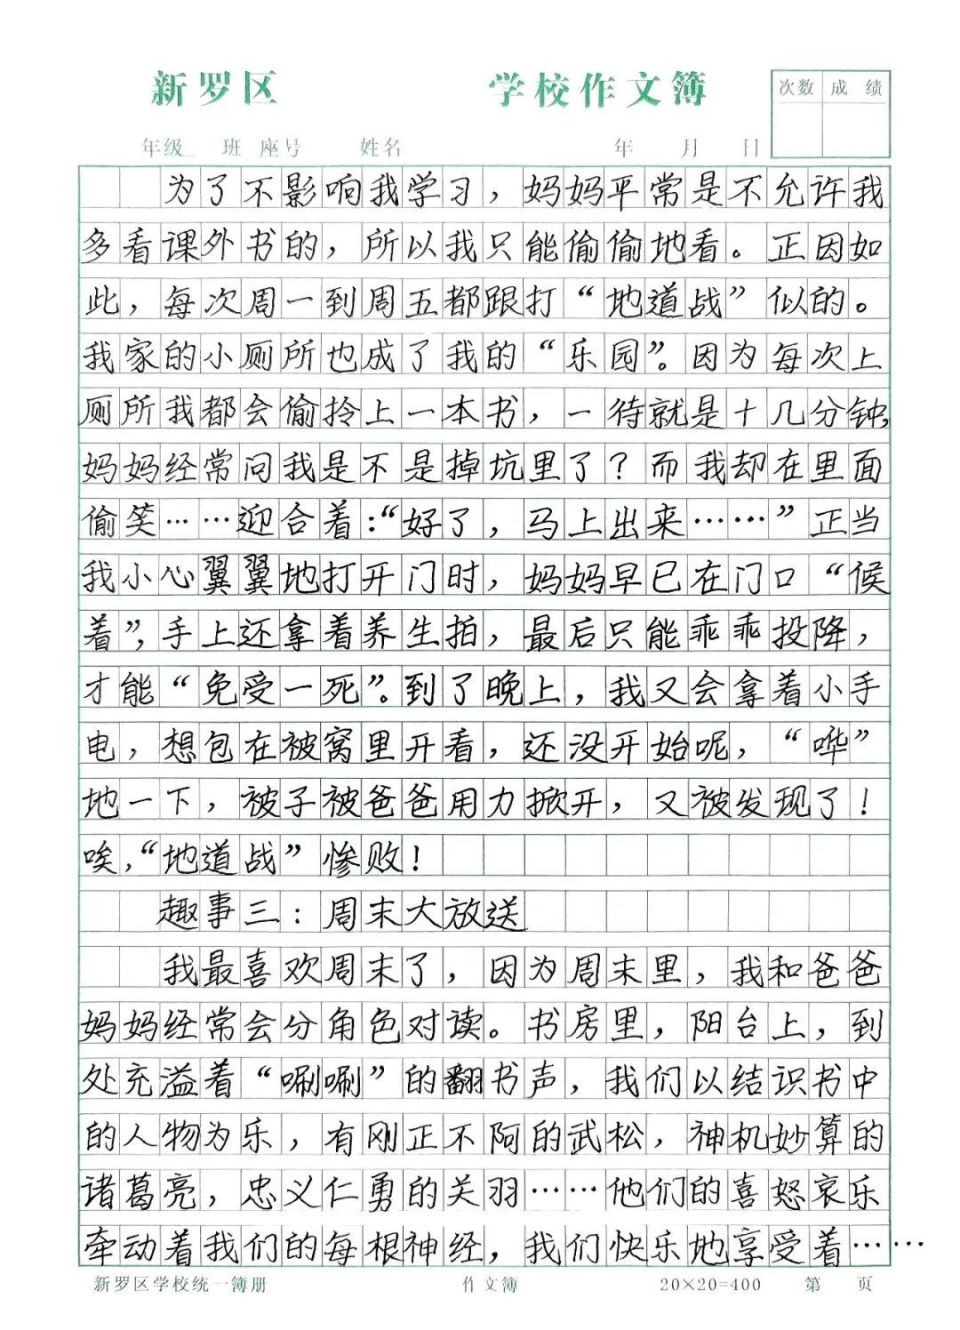 新罗区 学校作文簿 次数 成绩
年级 班 座号 姓名 年 月 日
为了不影响我学习，妈妈平常是不允许我
多看课外书的，所以我只能偷偷地看。正因如
此，每次周一到周五都跟打“地道战”似的。
我家的小厕所也成了我的“乐园”。因为每次上
厕所我都会偷拎上一本书，一待就是十几分钟，
妈妈经常问我是不是掉坑里了？而我却在里面
偷笑……迎合着：“好了，马上出来……”正当
我小心翼翼地打开门时，妈妈早已在门口“候
着”，手上还拿着养生拍，最后只能乖乖投降，
才能“免受一死”。到了晚上，我又会拿着小手
电，想包在被窝里开看，还没开始呢，“哗”
地一下，被子被爸爸用力掀开，又被发现了！
唉，“地道战”惨败！
趣事三：周末大放送
我最喜欢周末了，因为周末里，我和爸爸
妈妈经常会分角色对读。书房里，阳台上，到
处充溢着“唰唰”的翻书声，我们以结识书中
的人物为乐，有刚正不阿的武松，神机妙算的
诸葛亮，忠义仁勇的关羽……他们的喜怒哀乐
牵动着我们的每根神经，我们快乐地享受着……
新罗区学校统一簿册 作文簿 20×20=400 第 页